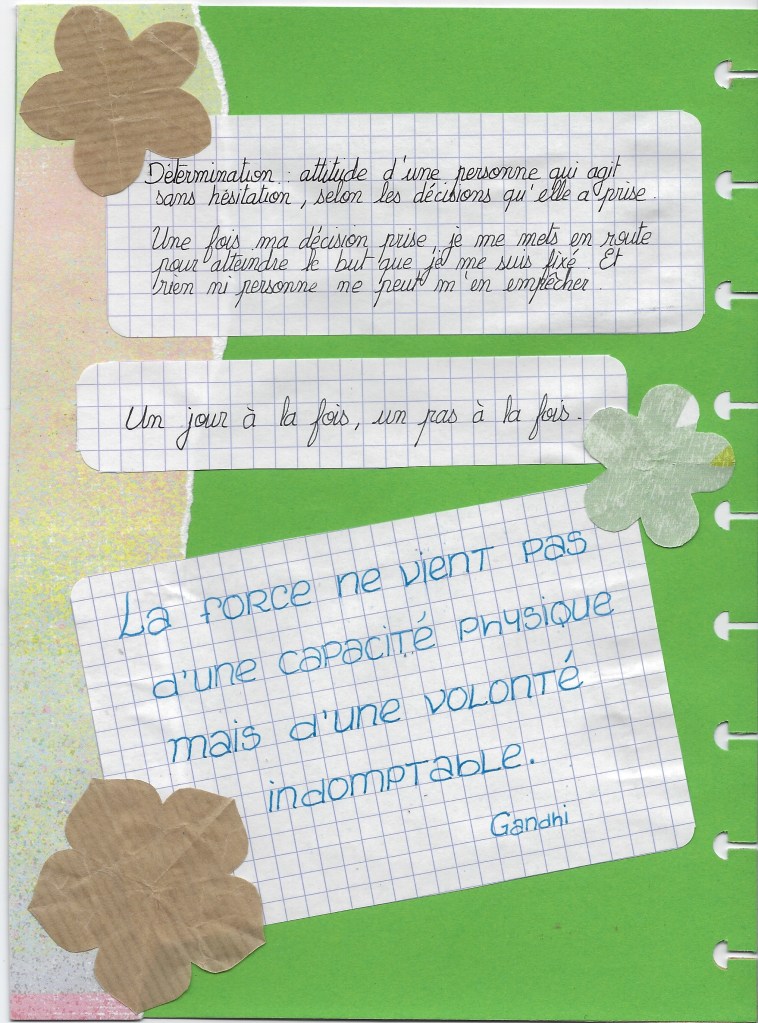 Détermination : attitude d'une personne qui agit
sans hésitation, selon les décisions qu'elle a prise.
Une fois ma décision prise, je me mets en route
pour atteindre le but que je me suis fixé. Et
rien ni personne ne peut m'en empêcher.
Un jour à la fois, un pas à la fois.
La force ne vient pas
d'une capacité physique
mais d'une volonté
indomptable.
Gandhi